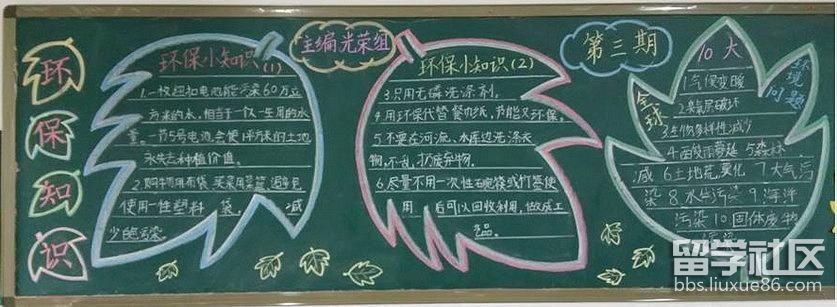 环
保
知
识
主编光荣组
第三期
环保小知识(1)
1.一枚纽扣电池能污染60万立
方米的水,相当于一个人一生用的水
量。一节5号电池会使1平方米的土地
永失去种植价值。
2.购物用布袋 买菜用菜篮,避免
使用一性塑料 袋。 减
少白色污染。
环保小知识(2)
3.只用无磷洗涤剂。
4.用环保代替餐巾纸,节能又环保。
5.不要在河流、水库边洗涤衣
物,不乱扔废弃物。
6.尽量不用一次性 碗筷或打签使
用 后可以回收利用,做成工
艺品。
10大
全球
环境
问题
1气候变暖
2臭氧层破坏
3.生物多样性减少
4酸雨蔓延 5森林
减 6土地荒漠化 7大气污
染 8水体污染 9海洋
污染 10固体废物
污染
留学社区
bbs.liuxue86.com